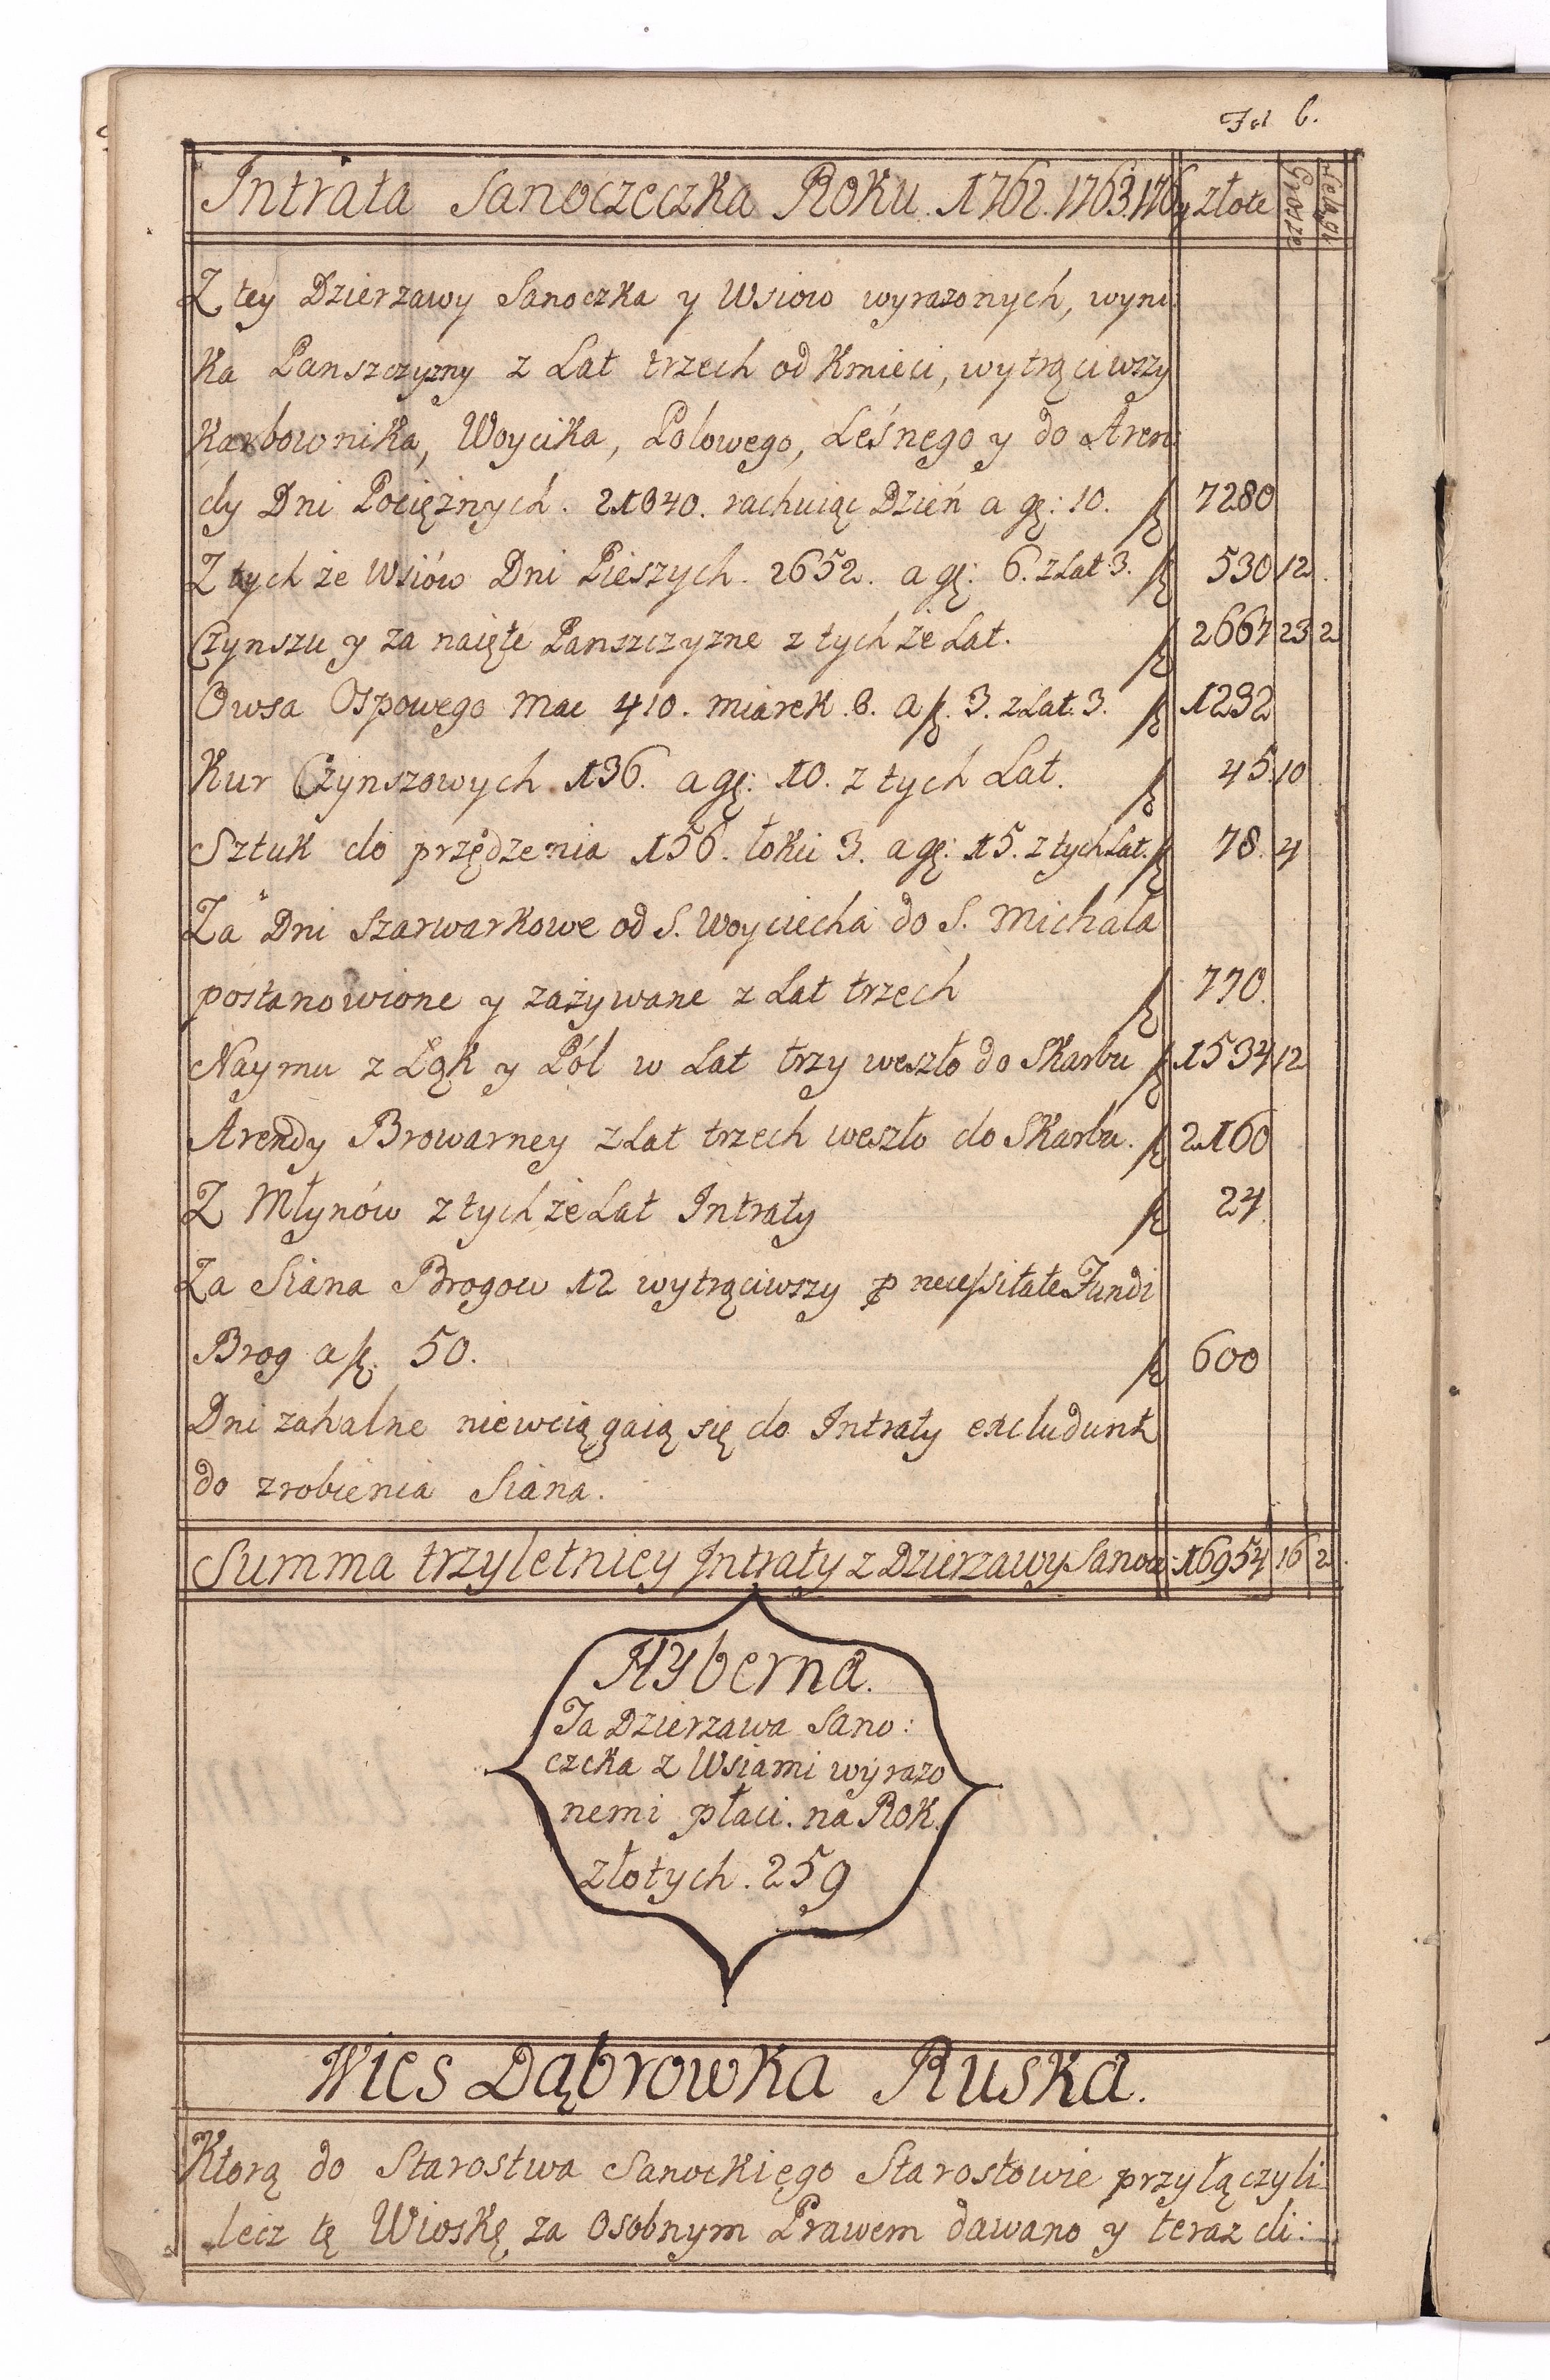 Fol 6.
Intrata Sanoczeczka Roku. 1762. 1763. 1764 złote Grosze Szelągi
Z tey Dzierzawy Sanoczka y Wsiow wyrazonych, wyni
ka Panszczyzny z Lat trzech od Kmieci, wytrąciwszy
Karbownika, Woycika, Polowego, Leśnego y do Aren
dy Dni Pociężnych. 21840. rachuiąc Dzień a gę: 10. 7280
Z tych że Wsiów Dni Pieszych. 2652. a gę: 6. z Lat: 3. 530 12.
Czynszu y za naięte Panszczyzne z tych że Lat. 2667 23 2
Owsa Ospowego Mac 410. miarek. 8. a 3. z Lat. 3. 1232
Kur Czynszowych 136. a gę: 10. z tych Lat. 45 10
Sztuk do przędzenia 156. łokci 3. a gę: 15. z tych Lat. 78. 4
Za Dni szarwarkowe od S. Woyciecha do S. Michała
postanowione y zażywane z Lat trzech 770.
Naymu z Łąk y Pól w Lat trzy weszło do Skarbu 1534 12
Arendy Browarney z Lat trzech weszło do Skarbu. 2160
Z Młynów z tych że Lat Intraty 24
Za Siana Brogow 12 wytrąciwszy p necessitate Fundi
Brog a 50. 600
Dni zahalne niewciągaią się do Intraty excludunt
do zrobienia Siana.
Summa trzyletniey Intraty z Dzierzawy Sanocz: 16954 16 2.
Hyberna.
Ta Dzierzawa Sano:
czcka z Wsiami wyrazo
nemi płaci. na Rok.
złotych. 259
Wies Dąbrowka Ruska.
Ktorą do Starostwa Sanockięgo Starostowie przyłączyli
lecz tę Wioskę za Osobnym Prawem dawano y teraz di: